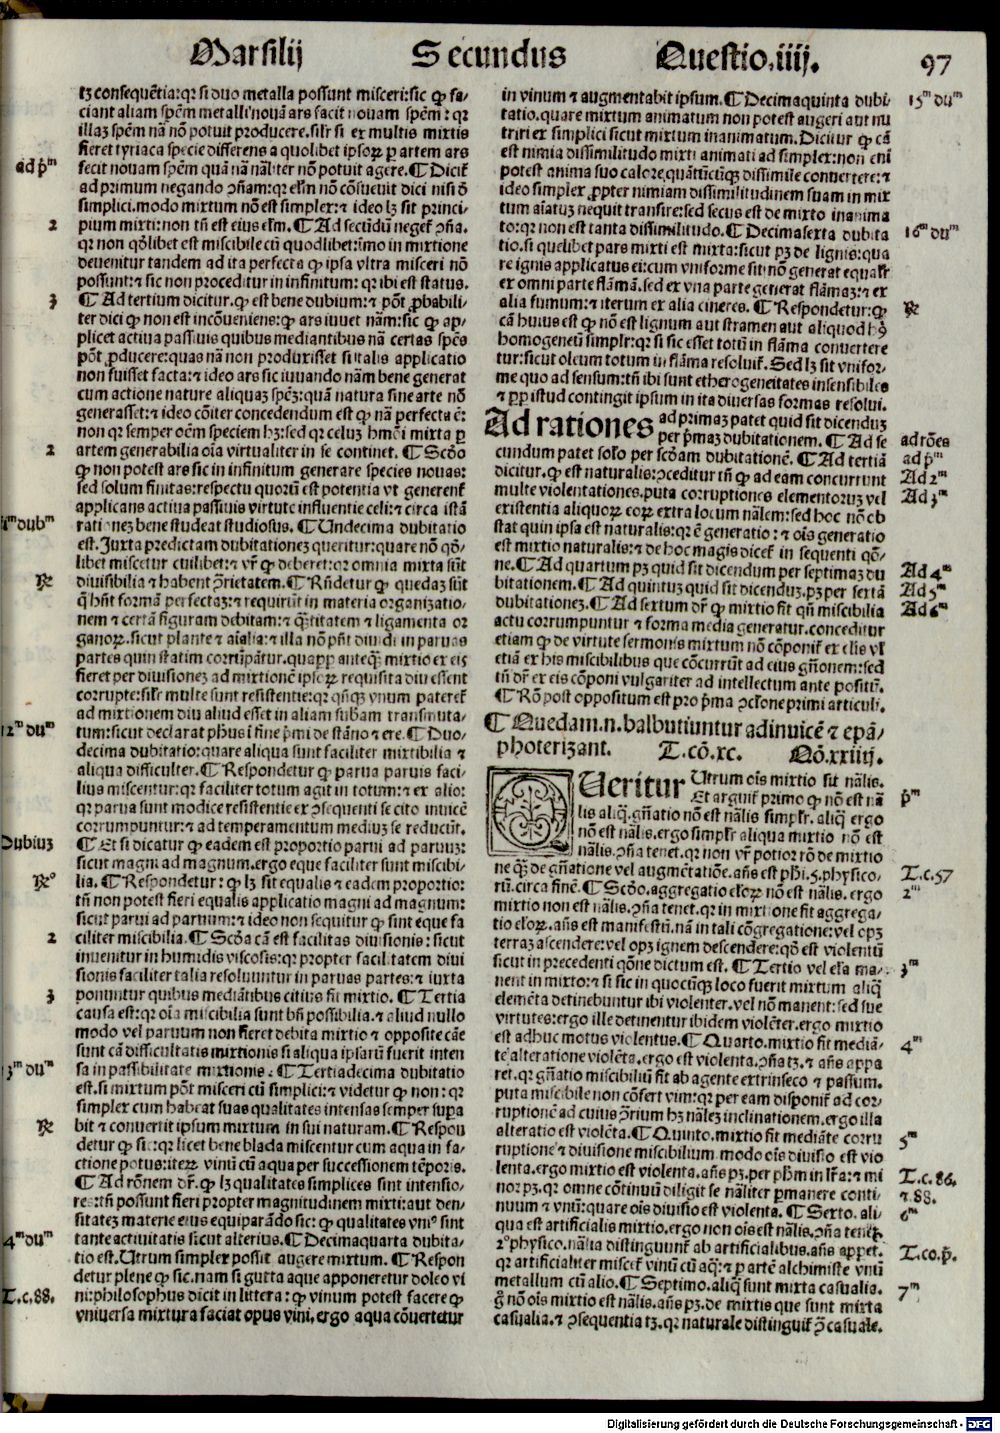 Marsilij Secundus Questio.iiij. 97
tꝫ consequẽtia: qꝛ si duo metalla possunt misceri: sic ꝙ fa-
ciant aliam spẽm metalli nouã ars facit nouam spẽm: qꝛ
illaꝫ spẽm nã nõ potuit producere. silꝛ si ex multis mixtis
fieret tyriaca specie differens a quolibet ipsoꝝ ꝑ artem ars
fecit nouam spẽm quã nã nãliter nõ potuit agere. ¶ Diciť
ad primum negando ↄñam: qꝛ elm̃ nõ cõsueuit dici nisi õ
simplici. modo mixtum nõ est simplex: ⁊ ideo lꝫ sit princi-
pium mixti: non tñ est eius elm̃. ¶ Ad secũdũ negeť ↄña.
qꝛ non qõlibet est miscibile cũ quodlibet: imo in mixtione
deuenitur tandem ad ita perfecta ꝙ ipsa vltra misceri nõ
possunt: ⁊ sic non proceditur in infinitum: qꝛ ibi est status.
¶ Ad tertium dicitur. ꝙ est bene dubium: ⁊ põt ꝓbabili-
ter dici ꝙ non est incõueniens: ꝙ ars iuuet nãm: sic ꝙ ap-
plicet actiua passiuis quibus mediantibus nã certas spẽs
põt ꝓducere: quas nã non produxisset si talis applicatio
non fuisset facta: ⁊ ideo ars sic iuuando nãm bene generat
cum actione nature aliquas spẽꝫ: quã natura sine arte nõ
generasset: ⁊ ideo cõiter concedendum est ꝙ nã perfecta ẽ:
non qꝛ semper oẽm speciem hꝫ: sed qꝛ celuꝫ hmõi mixta ꝑ
artem generabilia oĩa virtualiter in se continet. ¶ Scðo
ꝙ non potest ars sic in infinitum generare species nouas:
sed solum finitas: respectu quorũ est potentia vt generenť
applicans actiua passiuis virtute influentie celi: ⁊ circa istã
rationeꝫ bene studeat studiosus. ¶ Undecima dubitatio
est. Juxta predictam dubitationeꝫ queritur: quare nõ qõ-
libet miscetur cuilibet: ⁊ vř ꝙ deberet: qꝛ omnia mixta sũt
diuisibilia ⁊ habent ↄ̃rietatem. ¶ Rñdetur ꝙ quedaꝫ sũt
q̃ hñt formã perfectaꝫ: ⁊ requirũt in materia organizatio-
nem ⁊ certã figuram debitam: ⁊ q̃titatem ⁊ ligamenta or
ganoꝝ. sicut plante ⁊ aĩalia: ⁊ illa nõ pñt diuidi in paruas
partes quin statim corrũpãtur. quapꝑ anteq̃ꝫ mixtio ex eis
fieret per diuisioneꝫ ad mixtionẽ ipsoꝝ requisita diu essent
corrupte: silꝛ multe sunt resistentie: qꝛ q̃nꝙ vnum pateret
ad mixtionem diu aliud esset in aliam subam transmuta-
tum: sicut declarat phus i fine p̃mi de stãno ⁊ ere. ¶ Duo-
decima dubitatio: quare aliqua sunt faciliter mixtibilia ⁊
aliqua difficulter. ¶ Respondetur ꝙ parua paruis faci-
lius miscentur: qꝛ faciliter totum agit in totum: ⁊ ex alio:
qꝛ parua sunt modice resistentie ex ↄsequenti se cito inuicẽ
corrumpuntur: ⁊ ad temperamentum mediuꝫ se reducũt.
¶ Et si dicatur ꝙ eadem est proportio parui ad paruuꝫ:
sicut magni ad magnum. ergo eque faciliter sunt miscibi-
lia. ¶ Respondetur: ꝙ lꝫ sit equalis ⁊ eadem proportio:
tñ non potest fieri equalis applicatio magni ad magnum:
sicut parui ad paruum: ⁊ ideo non sequitur ꝙ sint eque fa
ciliter miscibilia. ¶ Scða cã est facilitas diuisionis: sicut
inuenitur in humidis viscosis: qꝛ propter facilitatem diui
sionis faciliter talia resoluuntur in paruas partes: ⁊ iuxta
ponuntur quibus mediãtibus citius fit mixtio. ¶ Tertia
causa est: qꝛ oĩa miscibilia sunt bñ passibilia. ⁊ aliud nullo
modo vel paruum non fieret debita mixtio ⁊ opposite cãe
sunt cã difficultatis mixtionis si aliqua ipsarũ fuerit inten
sa in passibilitate mixtionis. ¶ Tertiadecima dubitatio
est. si mixtum põt misceri cũ simplici: ⁊ videtur ꝙ non: qꝛ
simplex cum habeat suas qualitates intensas semper supa
bit ⁊ conuertit ipsum mixtum in sui naturam. ¶ Respon
detur ꝙ sic: qꝛ licet bene blada miscentur cum aqua in fa-
ctione potus: iteꝝ vinũ cũ aqua per successionem tẽporis.
¶ Ad rõnem dř. ꝙ lꝫ qualitates simplices sint intensio-
res: tñ possunt fieri propter magnitudinem mixti: aut den-
sitateꝫ materie eius equiparãdo sic: ꝙ qualitates vniꝰ sint
tante actiuitatis sicut alterius. ¶ Decimaquarta dubita-
tio est. Utrum simplex possit augere mixtum. ¶ Respon
detur plene ꝙ sic. nam si gutta aque apponeretur doleo vi
ni: philosophus dicit in littera: ꝙ vinum potest facere ꝙ
vniuersa mixtura faciat opus vini. ergo aqua cõuertetur
ad p̃m
2
3
2
11m dubm
℞
12m dum
Dubiuꝫ
℞o
2
3
13m dum
℞
14m dum
T.c.88.
in vinum ⁊ augmentabit ipsum. ¶ Decimaquinta dubi-
tatio. quare mixtum animatum non potest augeri aut nu
triri ex simplici sicut mixtum inanimatum. Dicitur ꝙ cã
est nimia dissimilitudo mixti animati ad simplex: non eni
potest anima suo calore quãtũcũqꝫ dissimile conuertere: ⁊
ideo simplex ꝓpter nimiam dissimilitudinem suam in mix
tum aiatuꝫ nequit transire: sed secus est de mixto inanima
to: qꝛ non est tanta dissimilitudo. ¶ Decimasexta dubita
tio. si quelibet pars mixti est mixta: sicut pꝫ de lignis: qua
re ignis applicatus ei: cum vniforme sit: nõ generat equalř
ex omni parte flãmã. sed ex vna parte generat flãmaꝫ: ⁊ ex
alia fumum: ⁊ iterum ex alia cineres. ¶ Respondetur: ꝙ
cã huius est ꝙ nõ est lignum aut stramen aut aliquod hꝰ
homogeneũ simplr: qꝛ si sic esset totũ in flãma conuertere
tur: sicut oleum totum in flãma resoluiť. Sed lꝫ sit vnifor-
me quo ad sensum: tñ ibi sunt etherogeneitates insensibiles
⁊ pꝑ istud contingit ipsum in ita diuersas formas resolui.
Ad rationes ad primaꝫ patet quid sit dicenduꝫ
per p̃maꝫ dubitationem. ¶ Ad se
cundum patet solo per scðam dubitationẽ. ¶ Ad tertiã
dicitur. ꝙ est naturalis: ↄceditur tñ ꝙ ad eam concurrunt
multe violentationes. puta corruptiones elementoruꝫ vel
existentia aliquoꝝ eoꝝ extra locum nãlem: sed hoc nõ ob
stat quin ipsa est naturalis: qꝛ ẽ generatio: ⁊ ois generatio
est mixtio naturalis: ⁊ de hoc magis diceť in sequenti qõ-
ne. ¶ Ad quartum pꝫ quid sit dicendum per septimaꝫ du
bitationem. ¶ Ad quintuꝫ quid sit dicenduꝫ. pꝫ per sextã
dubitationeꝫ. ¶ Ad sextum dř ꝙ mixtio fit qñ miscibilia
actu corrumpuntur ⁊ forma media generatur. conceditur
etiam ꝙ de virtute sermonis mixtum nõ cõponiť ex elis vľ
etiã ex his miscibilibus que cõcurrũt ad eius gñonem: sed
tñ dř ex eis cõponi vulgariter ad intellectum ante positũ.
¶ Rõ post oppositum est pro p̃ma ↄclone primi articuli.
¶ Quedam.n.balbutiuntur adinuicẽ ⁊ epã/
photerizant. T.cõ.xc. Nõ.xxiiij.
Queritur Utrum ois mixtio sit nãlis.
Et arguiť primo ꝙ nõ est nã
lis aliq̃. gñatio nõ est nãlis simplr. aliq̃ ergo
nõ est nãlis. ergo simplr aliqua mixtio nõ est
nãlis. ↄña tenet. qꝛ non vř potior rõ de mixtio
ne q̃ꝫ de gñatione vel augmẽtatiõe. añs est phi. 5. physico-
rũ. circa finẽ. ¶ Scðo. aggregatio eloꝝ nõ est nãlis. ergo
mixtio non est nãlis. ↄña tenet. qꝛ in mixtione fit aggrega-
tio eloꝝ. añs est manifestũ. nã in tali cõgregatione: vel opꝫ
terraꝫ ascendere: vel opꝫ ignem descendere: qõ est violentũ
sicut in precedenti qõne dictum est. ¶ Tertio vel ela ma-
nent in mixto: ⁊ si sic in quocũqꝫ loco fuerit mixtum aliq̃
elemẽta detinebuntur ibi violenter. vel nõ manent: sed sue
virtutes: ergo ille detinentur ibidem violẽter. ergo mixtio
est adhuc motus violentus. ¶ Quarto. mixtio fit mediã-
te alteratione violẽta. ergo est violenta. ↄña tꝫ. ⁊ añs appa
ret. qꝛ gñatio miscibiliũ fit ab agente extrinseco ⁊ passum.
puta miscibile non cõfert vim: qꝛ per eam disponiť ad cor-
ruptionẽ ad cuius ↄ̃rium hꝫ nãleꝫ inclinationem. ergo illa
alteratio est violẽta. ¶ Quinto. mixtio fit mediãte corru
ptione ⁊ diuisione miscibilium. modo ois diuisio est vio
lenta. ergo mixtio est violenta. añs pꝫ. per phm in lr̃a: ⁊ mi
nor pꝫ. qꝛ omne cõtinuũ diligit se nãliter ꝑmanere conti-
nuum ⁊ vnũ: quare ois diuisio est violenta. ¶ Sexto. ali-
qua est artificialis mixtio. ergo non ois est nãlis. ↄña tenꝫ
2o physico. nãlia distinguunť ab artificialibus. añs appet.
qꝛ artificialiter misceť vinũ cũ aq̃: ⁊ ꝑ artẽ alchimiste vnũ
metallum cũ alio. ¶ Septimo. aliq̃ sunt mixta casualia.
g̃ nõ ois mixtio est nãlis. añs pꝫ. de mixtis que sunt mixta
casualia. ⁊ ↄsequentia tꝫ. qꝛ naturale distinguiť ↄ̃ casuale.
15m dum
16m dum
℞
ad rões
ad p̃m
Ad 2m
Ad 3m
Ad 4m
Ad 5m
Ad 6m
p̃m
T.c.57
2m
3m
4m
5m
T.c.86.
⁊ 88.
6m
T.co.p̃.
7m
Digitalisierung gefördert durch die Deutsche Forschungsgemeinschaft - DFG